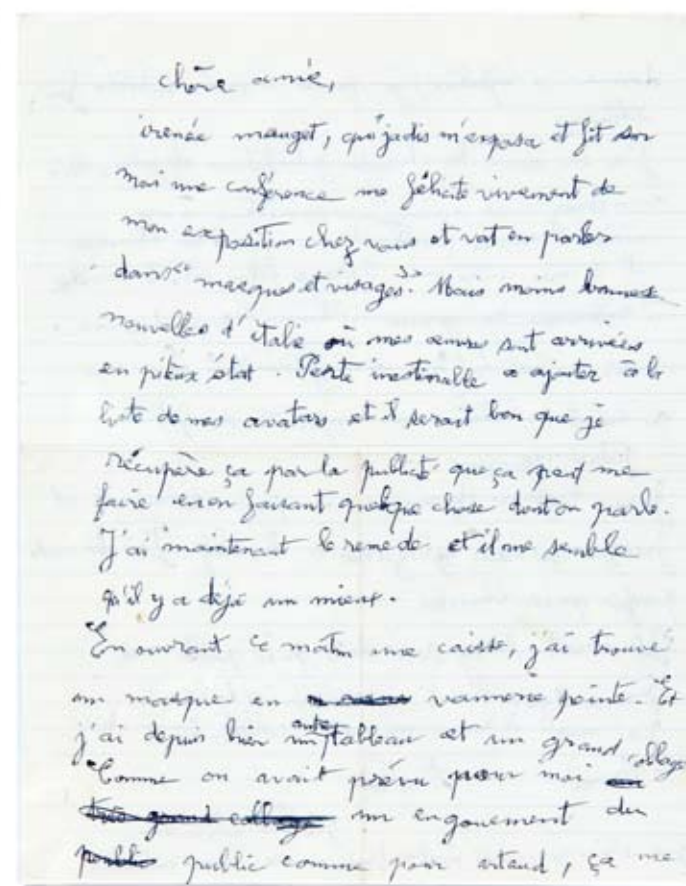 chère amie,
irenée mauget, qui jadis m'exposa et fit sur
moi une conférence me félicite vivement de
mon exposition chez vous et vat en parler
dans "masques et visages". Mais moins bonnes
nouvelles d'italie où mes œuvres sont arrivées
en piteux état. Perte inestimable a ajouter à la
liste de mes avatars et il serait bon que je
récupère ça par la publicité que ça peut me
faire en en faisant quelque chose dont on parle.
J'ai maintenant le remede et il me semble
qu'il y a déjà un mieux.
En ouvrant ce matin une caisse, j'ai trouvé
un masque en vannerie peinte. Et
j'ai depuis hier un autre tableau et un grand collage
Comme on avait prévu pour moi
très grand collage un engouement du
public public comme pour artaud, ça me